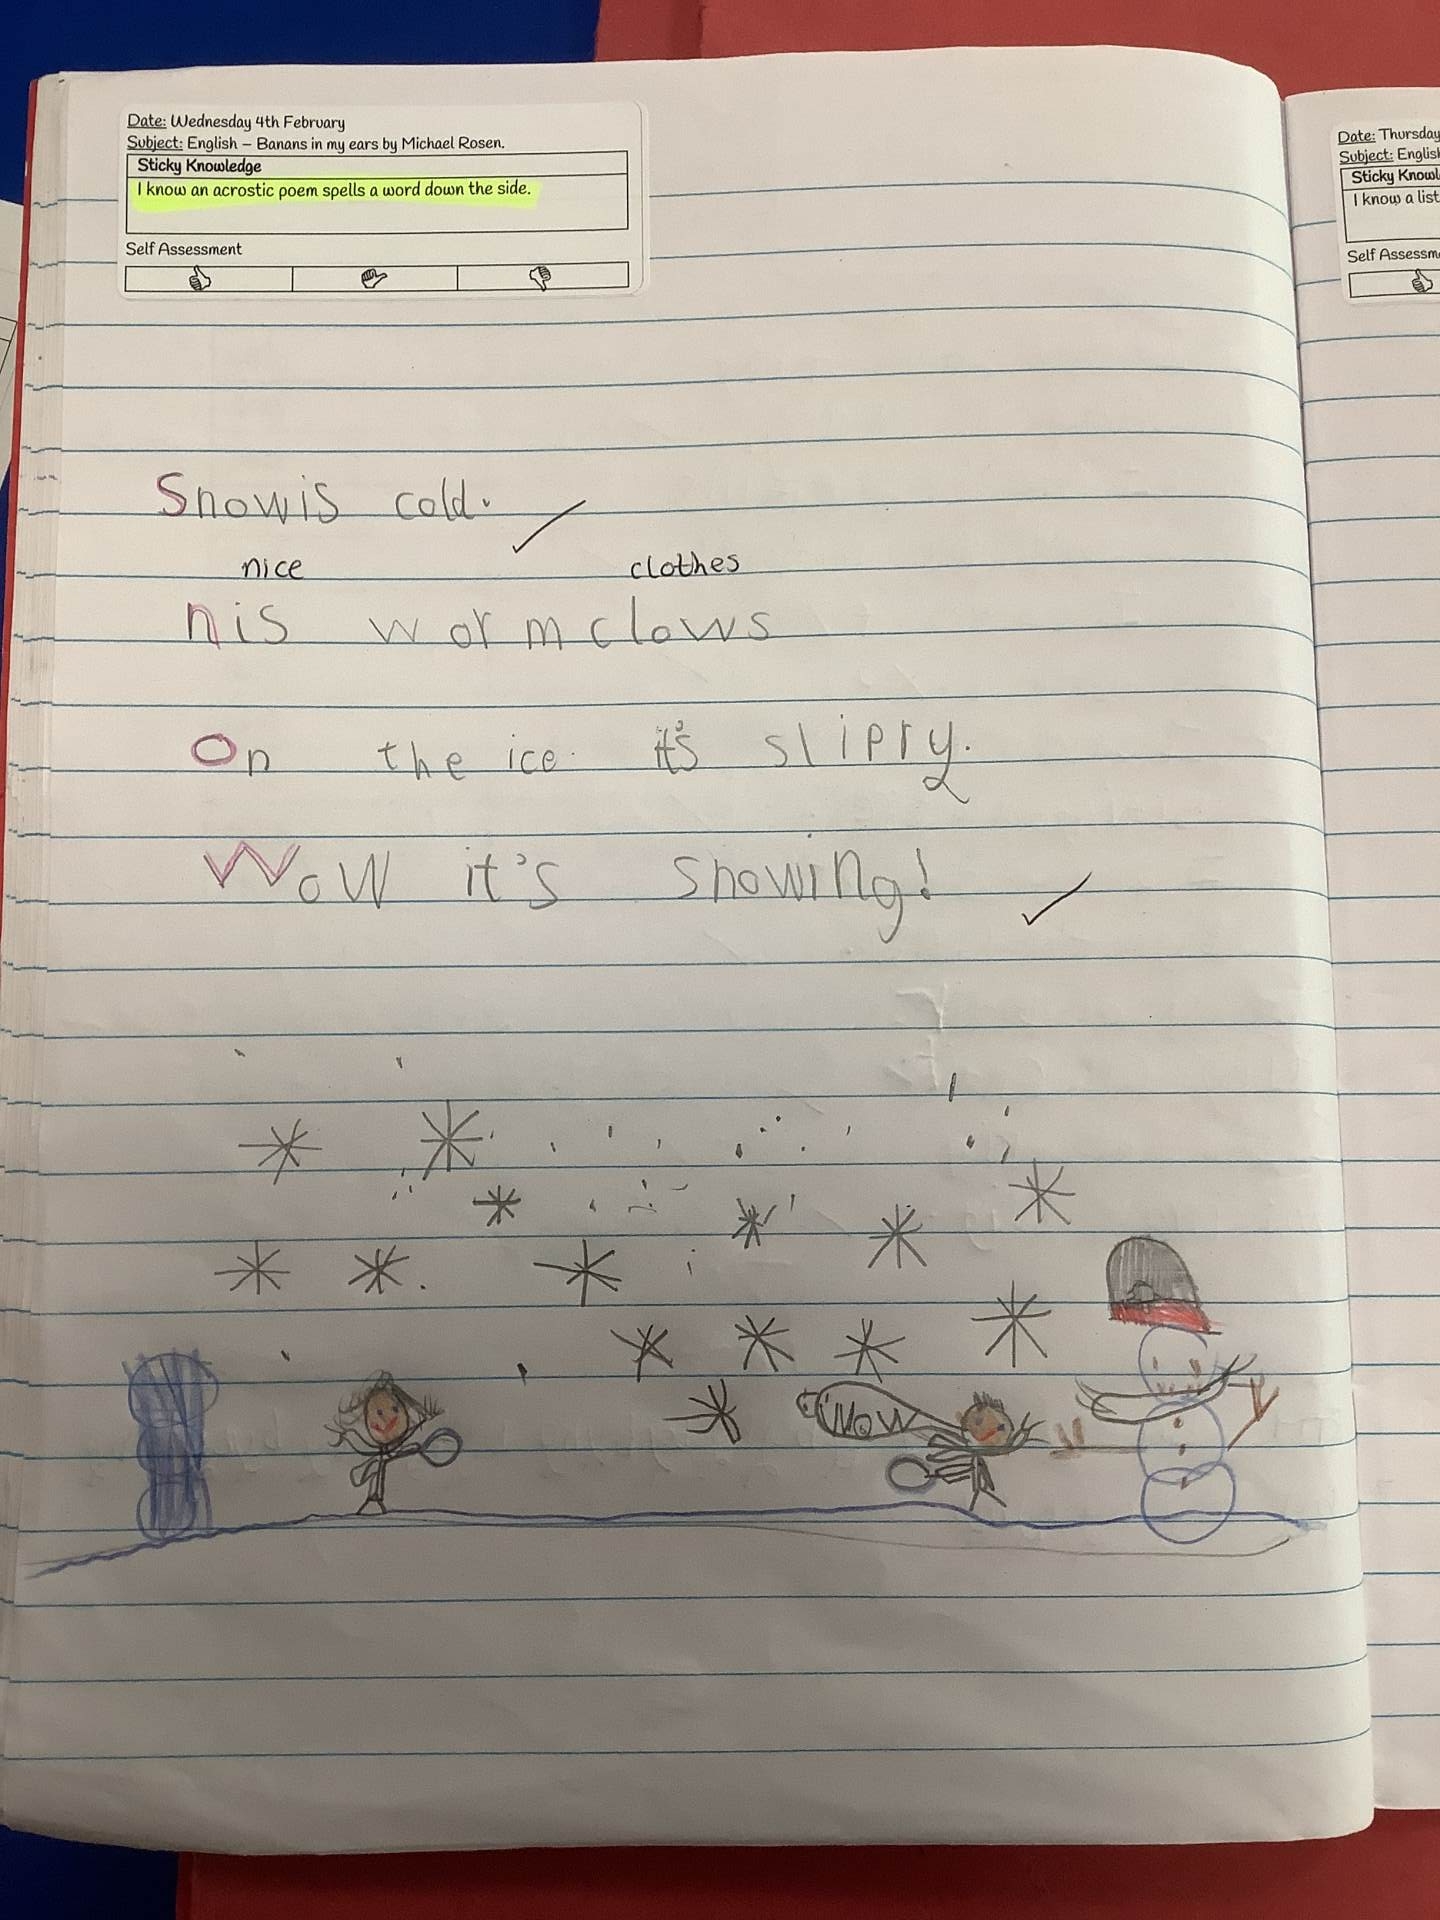 Date: Wednesday 4th February
Subject: English – Banans in my ears by Michael Rosen.
Sticky Knowledge
I know an acrostic poem spells a word down the side.
Self Assessment
Snow is cold.
nice clothes
nis worm clows
On the ice it's slipry.
Wow it's snowing!
Wow
Date: Thursday
Subject: English
Sticky Knowl
I know a list
Self Assessm